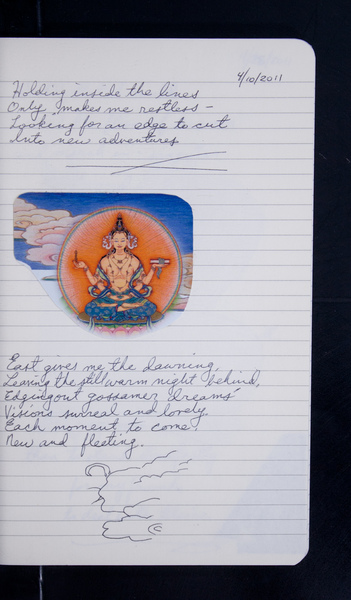 4/10/2011
Holding inside the lines
Only makes me restless –
Looking for an edge to cut
Into new adventures
East gives me the dawning,
Leaving the still warm night behind,
Edging out gossamer dreams'
Visions surreal and lovely
Each moment to come
New and fleeting.